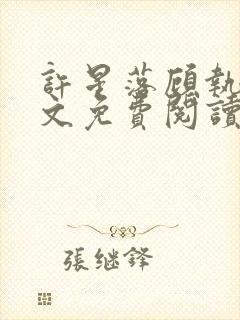 許星落顧執
文免費閱讀
張繼鋒